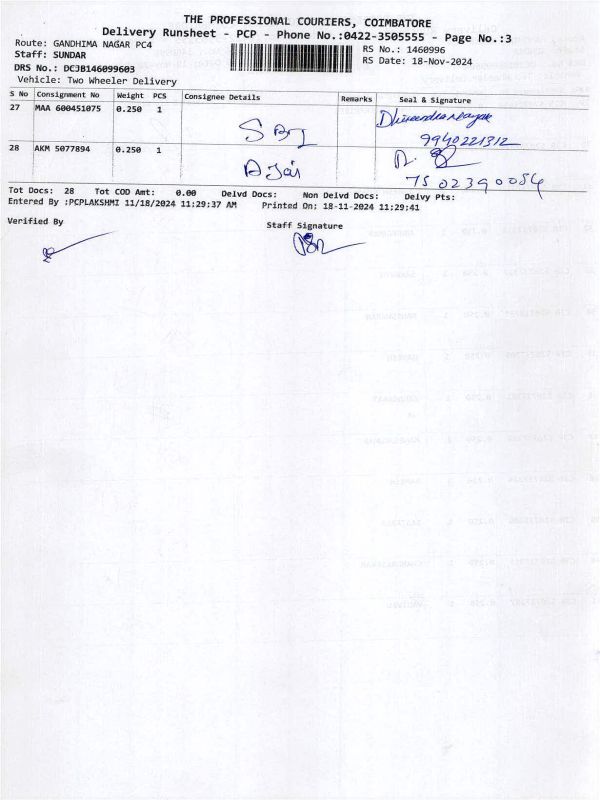 THE PROFESSIONAL COURIERS, COIMBATORE
Delivery Runsheet - PCP - Phone No.:0422-3505555 - Page No.:3
Route: GANDHIMA NAGAR PC4 RS No.: 1460996
Staff: SUNDAR RS Date: 18-Nov-2024
DRS No.: DCJB146099603
Vehicle: Two Wheeler Delivery
S No Consignment No Weight PCS Consignee Details Remarks Seal & Signature
27 MAA 600451075 0.250 1
SBI 9940221312
28 AKM 5077894 0.250 1
7502390084
Tot Docs: 28 Tot COD Amt: 0.00 Delvd Docs: Non Delvd Docs: Delvy Pts:
Entered By :PCPLAKSHMI 11/18/2024 11:29:37 AM Printed On: 18-11-2024 11:29:41
Verified By Staff Signature